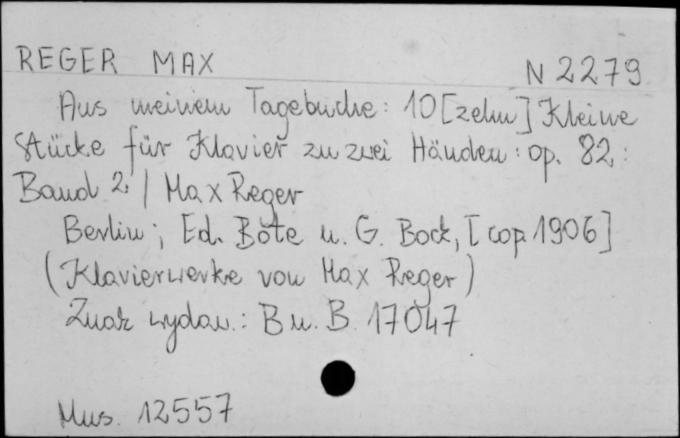 REGER MAX
N 2279
Aus meinem Tagebuche: 10 [zehn] Kleine
Stücke für Klavier zu zwei Händen: op. 82,:
Band 2, / Max Reger
Berlin; Ed. Bote u. G. Bock, [cop 1906]
(Klavierwerke von Max Reger)
Znak wydaw.: B u. B. 17047
Mus. 12557